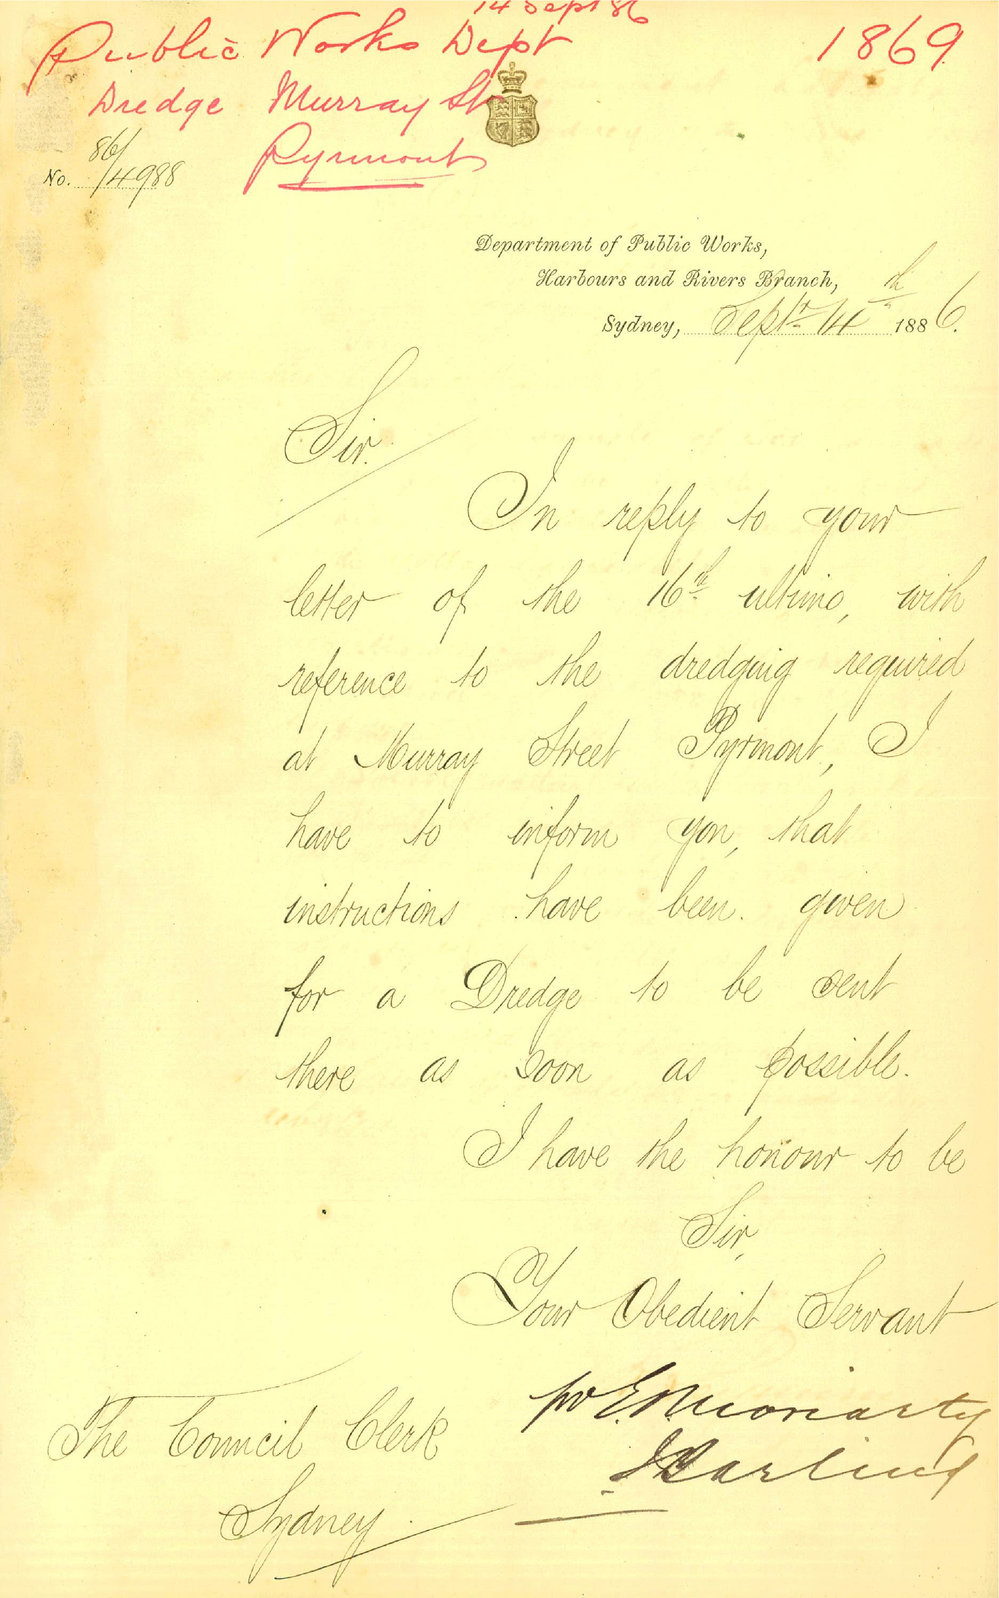 14 Sept 86
Public Works Dept
1869
Dredge Murray St
Pyrmont
No. 86/4988
Department of Public Works,
Harbours and Rivers Branch,
Sydney, Septr. 4th 1886.
Sir.
In reply to your
letter of the 16th ultimo, with
reference to the dredging required
at Murray Street Pyrmont, I
have to inform you, that
instructions have been given
for a Dredge to be sent
there as soon as possible.
I have the honour to be
Sir,
Your Obedient Servant
pro E. O. Moriarty
Darling
The Council Clerk
Sydney.